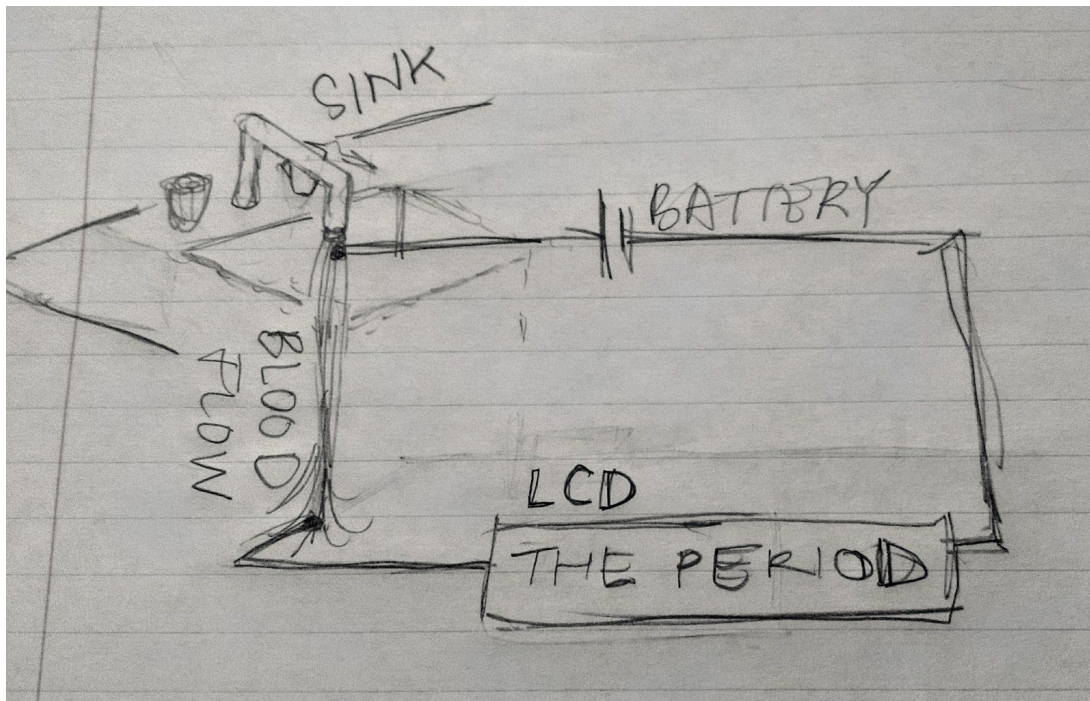 SINK
BATTERY
BLOOD
FLOW
LCD
THE PERIOD